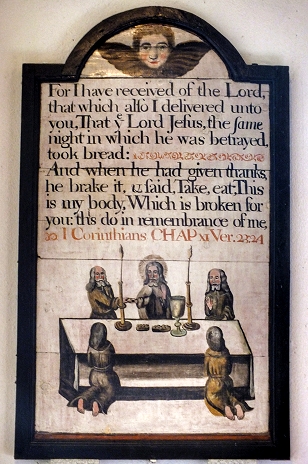 For I have received of the Lord,
that which alſo I delivered unto
you, That yͤ Lord Jeſus, the ſame
night in which he was betrayed,
took bread:
And when he had given thanks,
he brake it, & said, Take, eat; This
is my body, Which is broken for
you: this do in remembrance of me,
I Corinthians CHAP xi Ver. 23:24